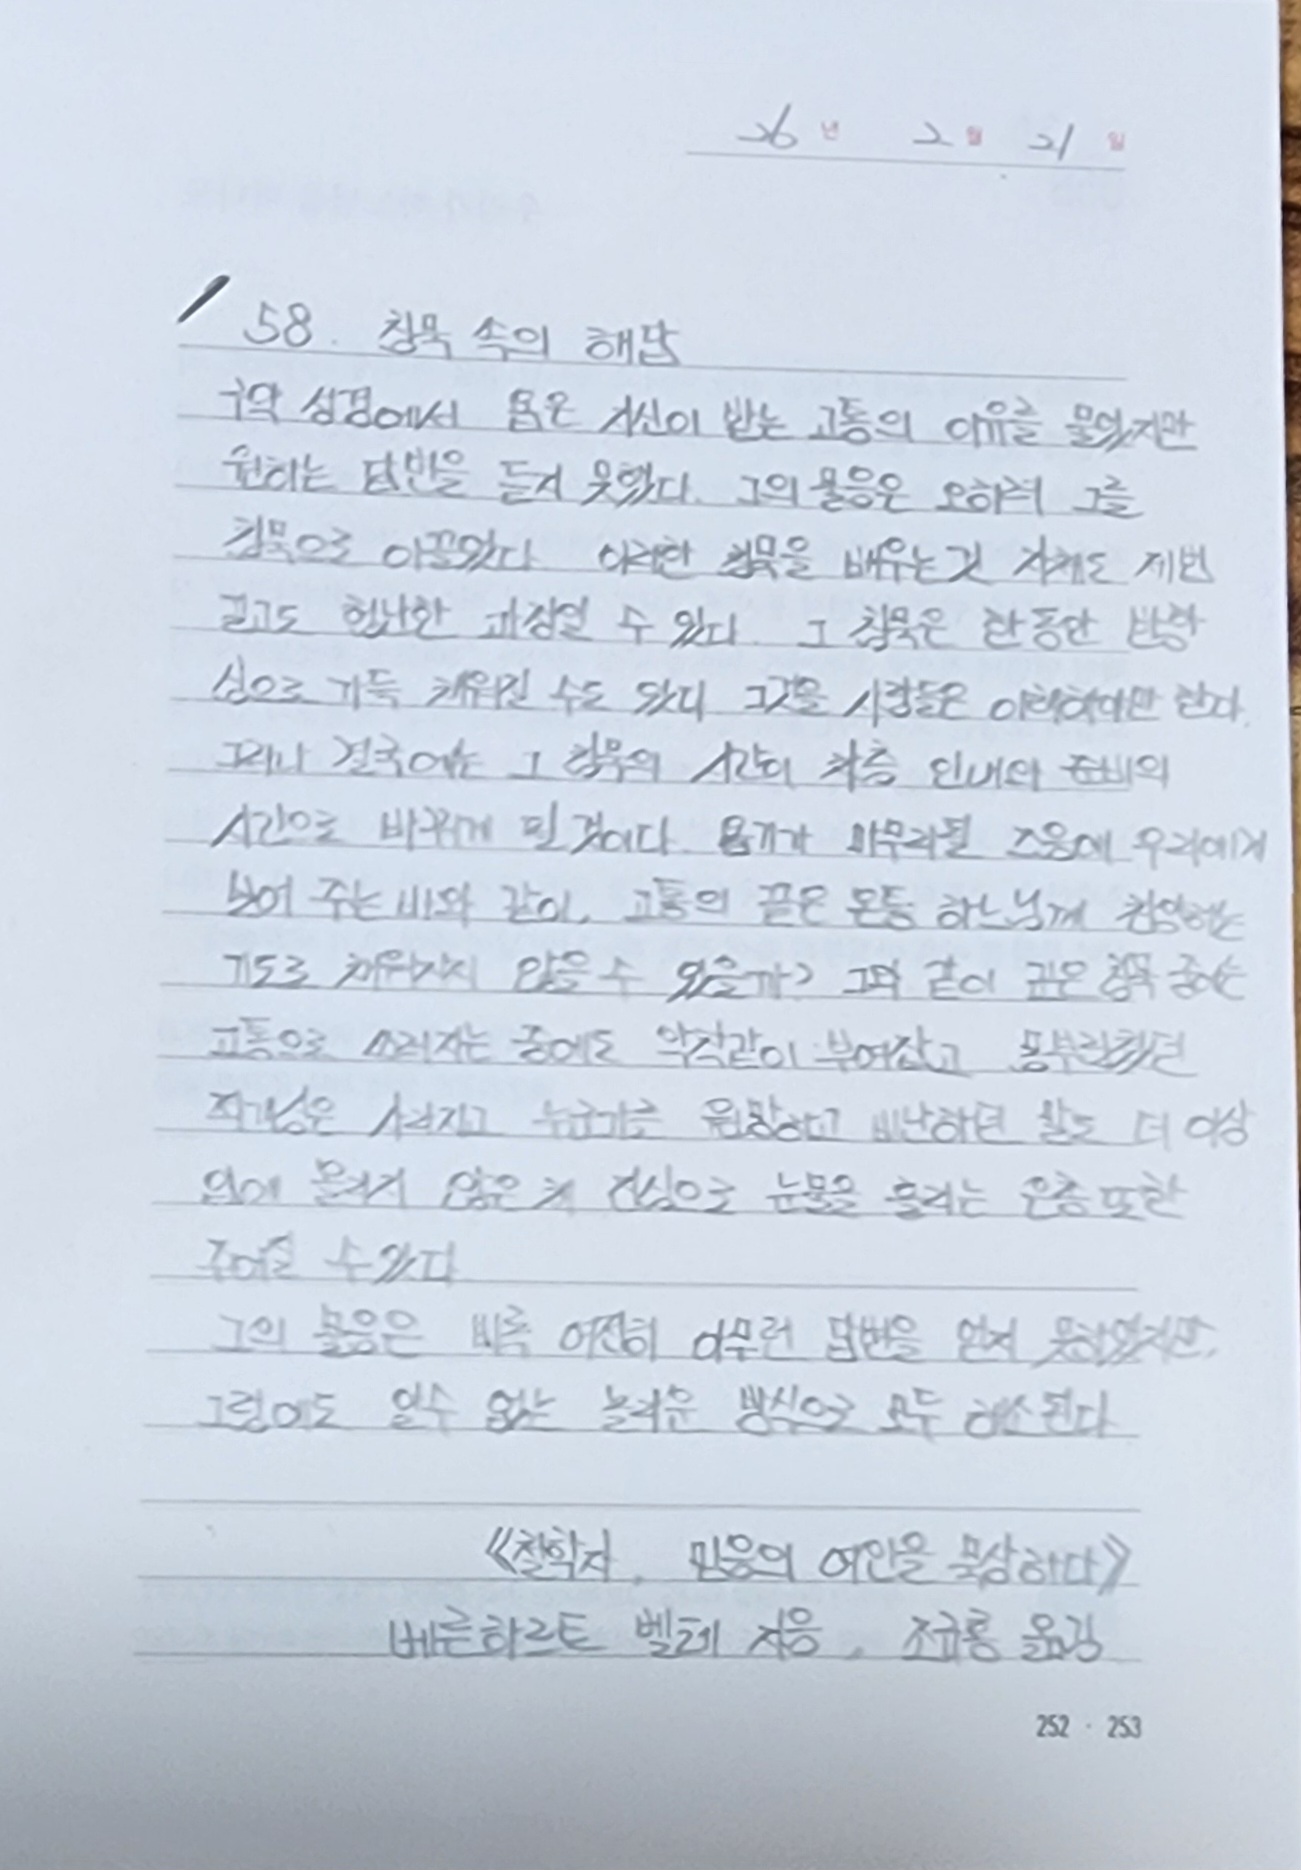 26년 2월 21일
58. 침묵 속의 해답
구약 성경에서 욥은 자신이 받는 고통의 이유를 물었지만
원하는 답변을 듣지 못했다. 그의 물음은 오히려 그를
침묵으로 이끌었다 이러한 침묵을 배우는 것 자체도 제법
길고도 험난한 과정일 수 있다. 그 침묵은 한동안 반항
심으로 가득 채워질 수도 있다 그것을 사람들은 이해하여만 한다.
그러나 결국에는 그 침묵의 시간이 차츰 인내와 준비의
시간으로 바뀌게 될 것이다. 욥기가 마무리될 즈음에 우리에게
보여 주는 바와 같이, 고통의 끝은 온통 하느님께 찬양하는
기도로 채워지지 않을 수 있을까? 그와 같이 깊은 침묵 중에는
고통으로 쓰러지는 중에도 악착같이 부여잡고 몸부림쳤던
자기상은 사라지고 누군가를 원망하고 비난하던 말도 더 이상
입에 올리지 않은 채 진심으로 눈물을 흘리는 은총 또한
주어질 수 있다
그의 물음은 비록 여전히 아무런 답변을 얻지 못하였지만,
그럼에도 알 수 없는 놀라운 방식으로 모두 해소된다
《철학자, 믿음의 여인을 묵상하다》
베른하르트 벨테 지음, 조규홍 옮김
252 · 253